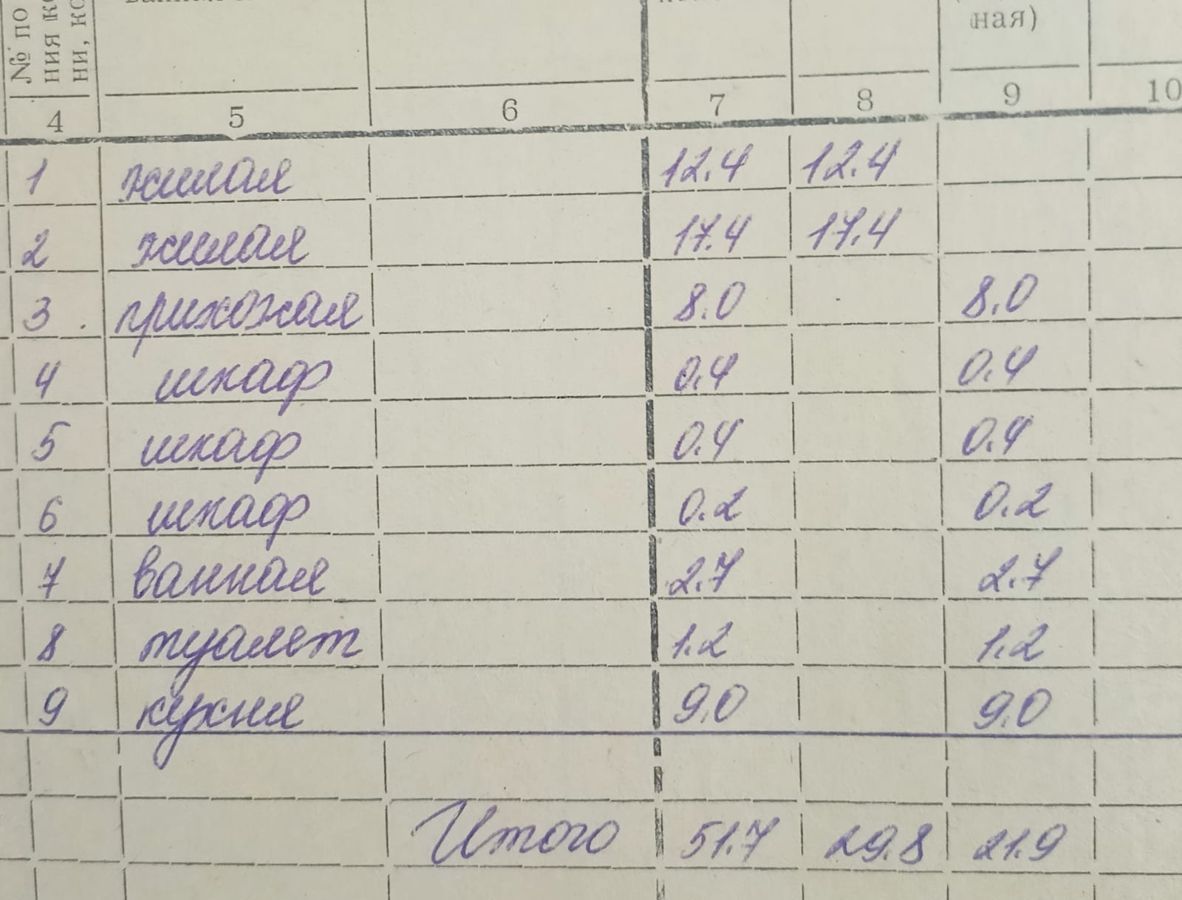 № по
ния
ни,
ная)
4 5 6 7 8 9 10
1 жилая 12.4 12.4
2 жилая 17.4 17.4
3 прихожая 8.0 8.0
4 шкаф 0.4 0.4
5 шкаф 0.4 0.4
6 шкаф 0.2 0.2
7 ванная 2.7 2.7
8 туалет 1.2 1.2
9 кухня 9.0 9.0
Итого 51.7 29.8 21.9